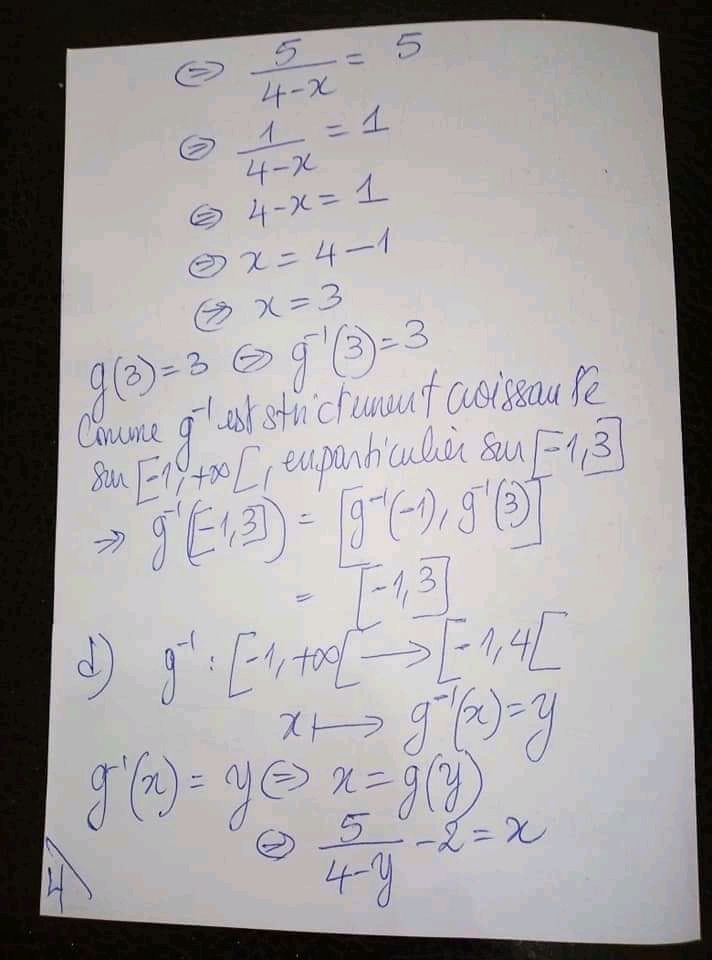 ⇔ 5/(4-x) = 5
⇔ 1/(4-x) = 1
⇔ 4-x = 1
⇔ x = 4-1
⇔ x = 3
g(3)=3 ⇔ g⁻¹(3)=3
Comme g⁻¹ est strictement croissante
sur [-1,+∞[, en particulier sur [-1,3]
⇒ g⁻¹([-1,3]) = [g⁻¹(-1), g⁻¹(3)]
= [-1,3]
d) g⁻¹ : [-1,+∞[ → [-1,4[
x ↦ g⁻¹(x)=y
g⁻¹(x) = y ⇔ x = g(y)
⇔ 5/(4-y) -2 = x
4